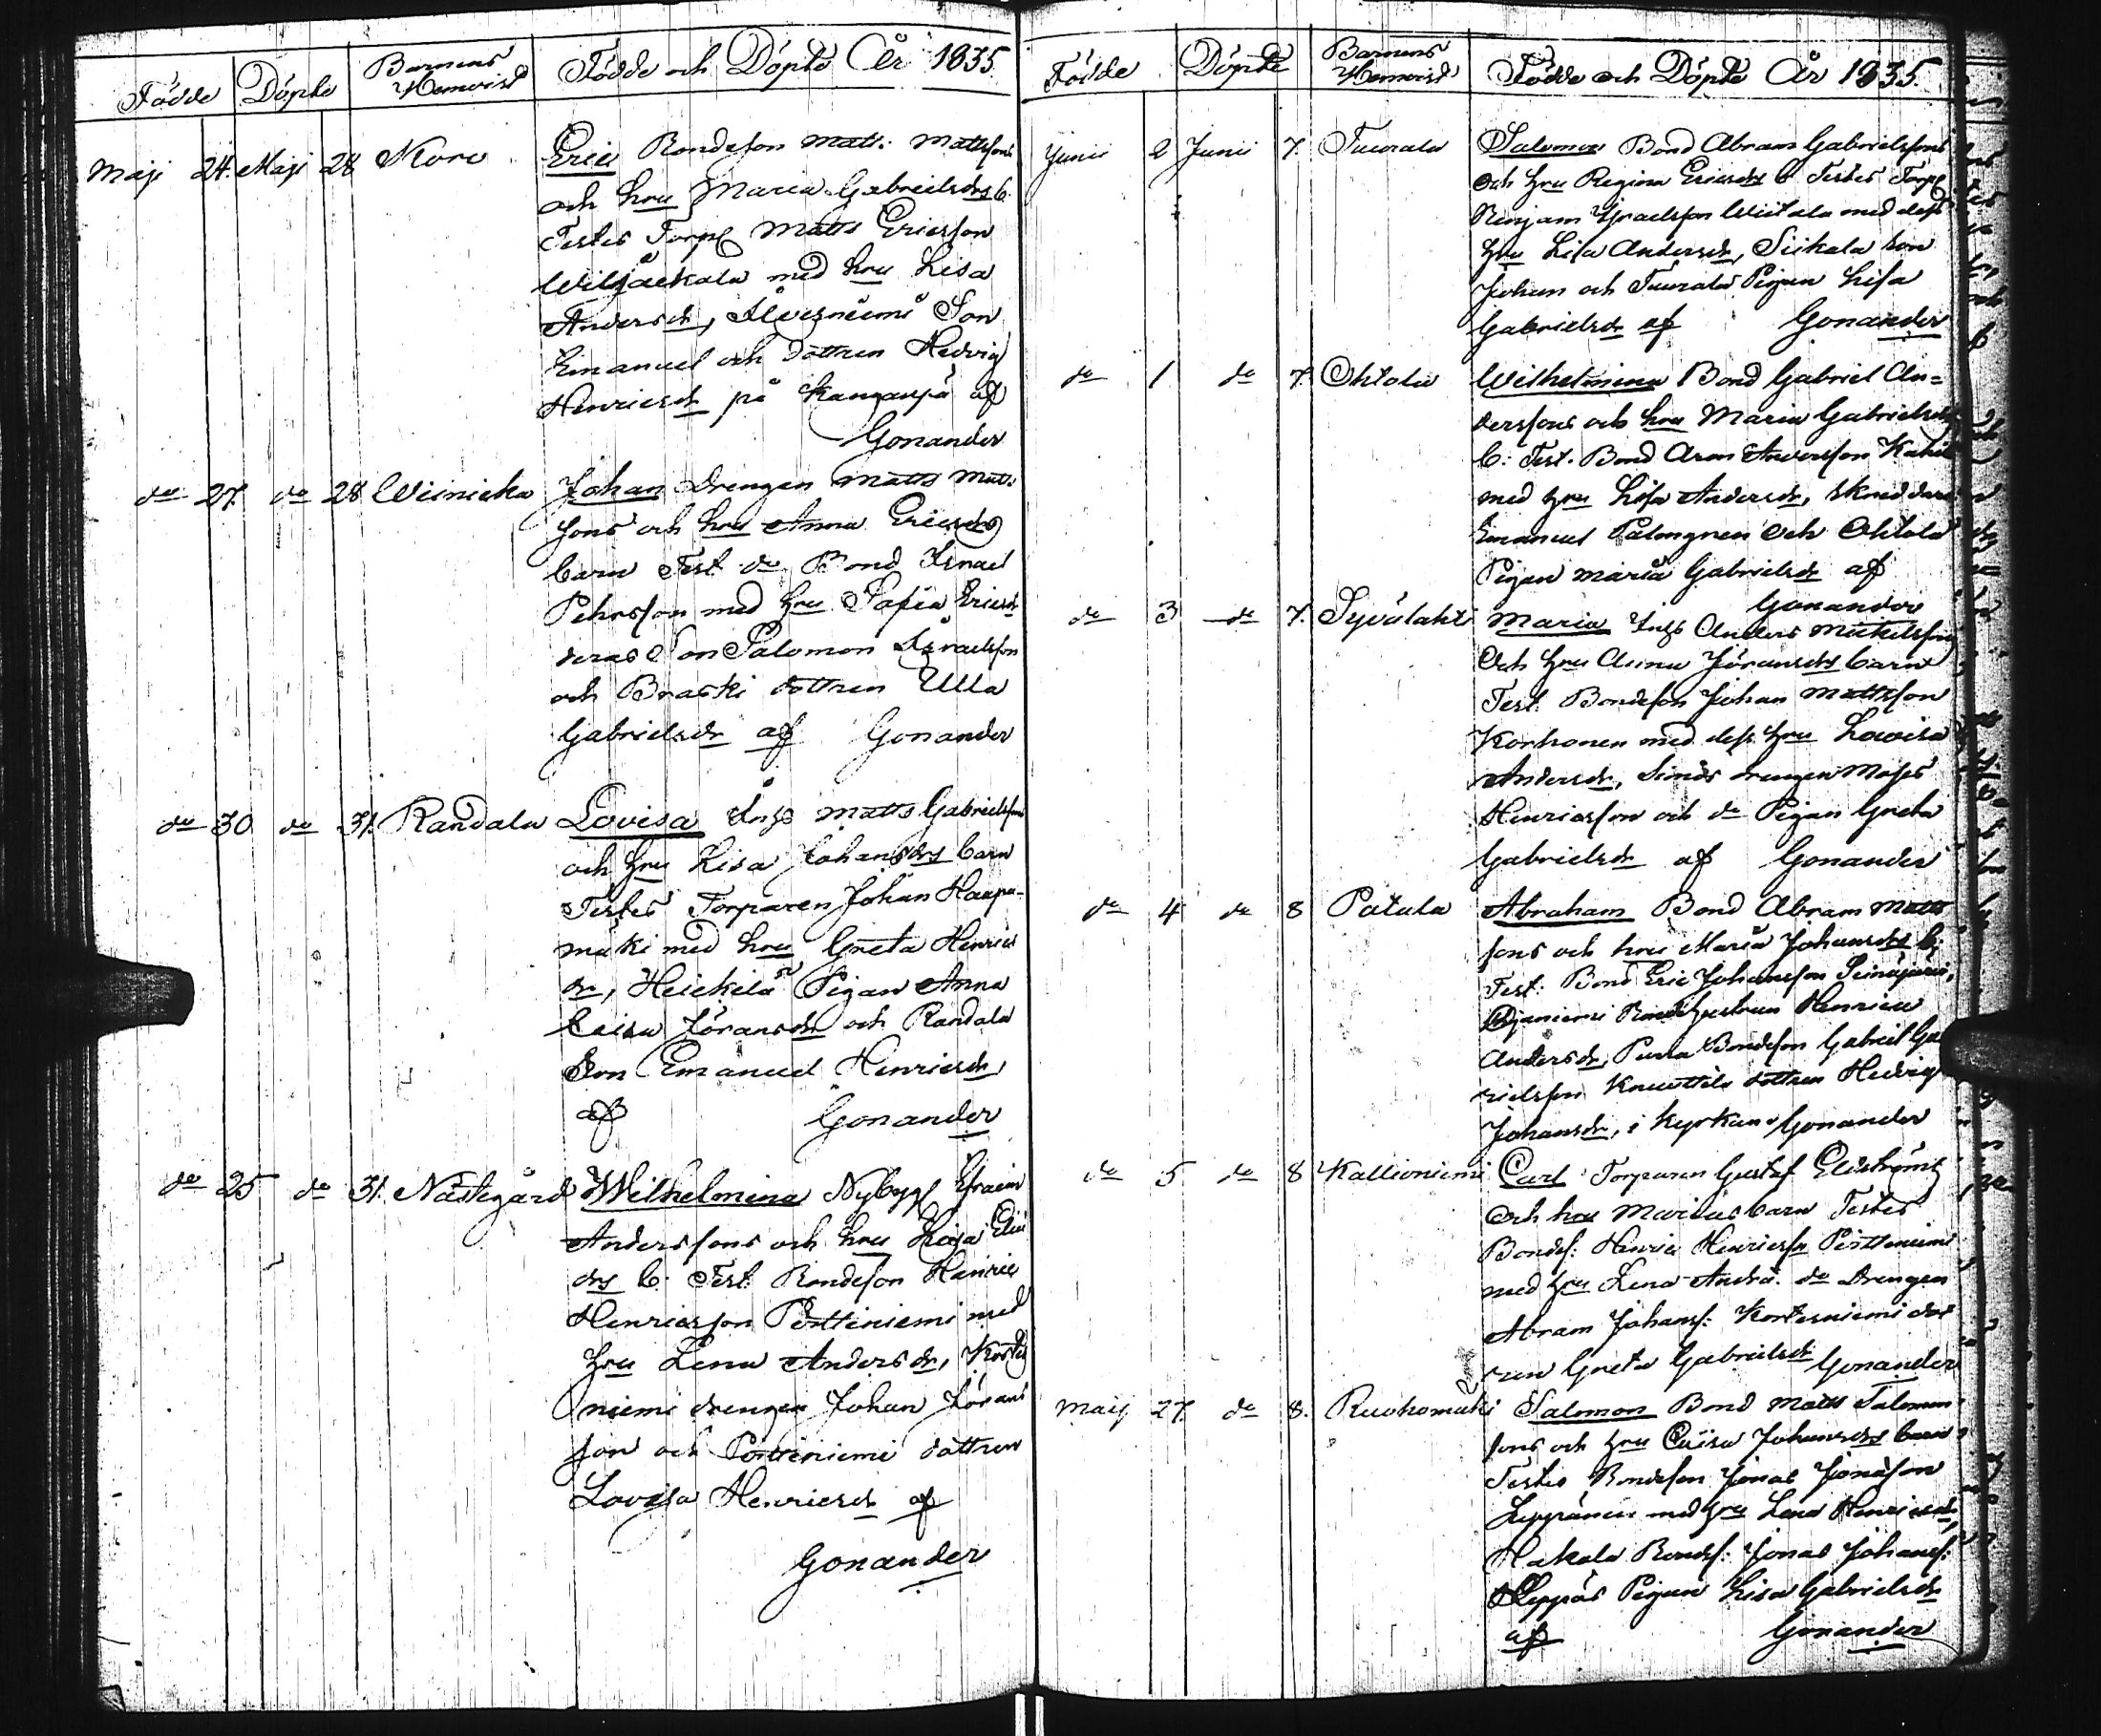 Födde Döpte Barnens Hemvist Födde och Döpte År 1835
Maji 24. Maji 28 Kore Eric Bondeson Matts Mattssons
och hru Maria Gabrielsdrs b.
Testes Torp Matts Ericsson
Wiljackala med hru Lisa
Andersdr, Alvesniemi Son
Emanuel och dottren Hedvig
Henricsdr på Kangaspä af
Gonander
do 27 do 28 Wiinicka Johan Drengen Matts Matt.
sons och hru Anna Ericsdrs
barn Test do Bond Israel
Pehrsson med hru Safia Ericsdr
deras Son Salomon Israelsson
och Braski dottren Ulla
Gabrielsdr af Gonander
do 30 do 31. Randala Lovisa Inhs Matts Gabrielssons
och hru Lisa Johansdrs barn
Testes Torparen Johan Haapa-
mäki med hru Greta Henrics
dr, Heickilä Pigan Anna
Caisa Jöransdr och Randala
Son Emanuel Henricsdr,
af Gonander
do 25 do 31. Nästegård Wilhelmina Nybygg Efraim
Anderssons och hru Kajsa Elis
drs b. Test. Bondeson Henric
Henricsson Pörttiniemi med
hru Lena Andersdr, Kortes
niemi drengen Johan Jörans
son och Pörttiniemi dottren
Lovisa Henricsdr af
Gonander
Födde Döpte Barnens Hemvist Födde och Döpte År 1835.
Junii 2 Junii 7. Tuurala Salomon Bond Abram Gabrielssons
och hru Regina Ericsdrs b Testes Torp
Benjam Israelsson Wiitala med dess
hru Lisa Andersdr, Siikala Son
Johan och Tuurala Pigan Lisa
Gabrielsdr af Gonander
do 1 do 7. Ohtola Wilhelmina Bond Gabriel An=
derssons och hru Maria Gabrielsdrs
b: Test. Bond Aron Andersson
med hru Lisa Andersdr, Skreddare
Emanuel Palmgren och Ohtola
Pigan Maria Gabrielsdr af
Gonander
do 3 do 7. Syvälahti Maria Inhs Anders Mickelssons
och hru Anna Jöransdrs barn
Test. Bondeson Johan Mattsson
Korhonen med dess hru Lovisa
Andersdr, drengen Moses
Henricsson och do Pigan Greta
Gabrielsdr af Gonander
do 4 do 8 Patala Abraham Bond Abram Matts
sons och hru Maria Johansdrs b.
Test. Bond Eric Johansson Seinäjärvi,
Ojaniemi Henrica
Andersdr, Purra Bondeson Gabriel Gab
rielsson Knuuttila dottren Hedvig
Johansdr, i Kyrkan Gonander
do 5 do 8 Kallioniemi Carl Torparen Gustaf Elgströms
och hru Marias barn Testes
Bondes: Henric Henricssn Pörttiniemi
med hru Lena Andrs. do Drengen
Abram Johanss: Kortesniemi dot
tren Greta Gabrielsdr Gonander
Maij 27. do 8. Ruohomäki Salomon Bond Matts Salomon
sons och hru Caisa Johansdrs barn
Testes Bondeson Jonas Jonasson
med hru Lena Henricsdr,
Hakola Bondes: Jonas Johanss:
Pigan Lisa Gabrielsdr
af Gonander